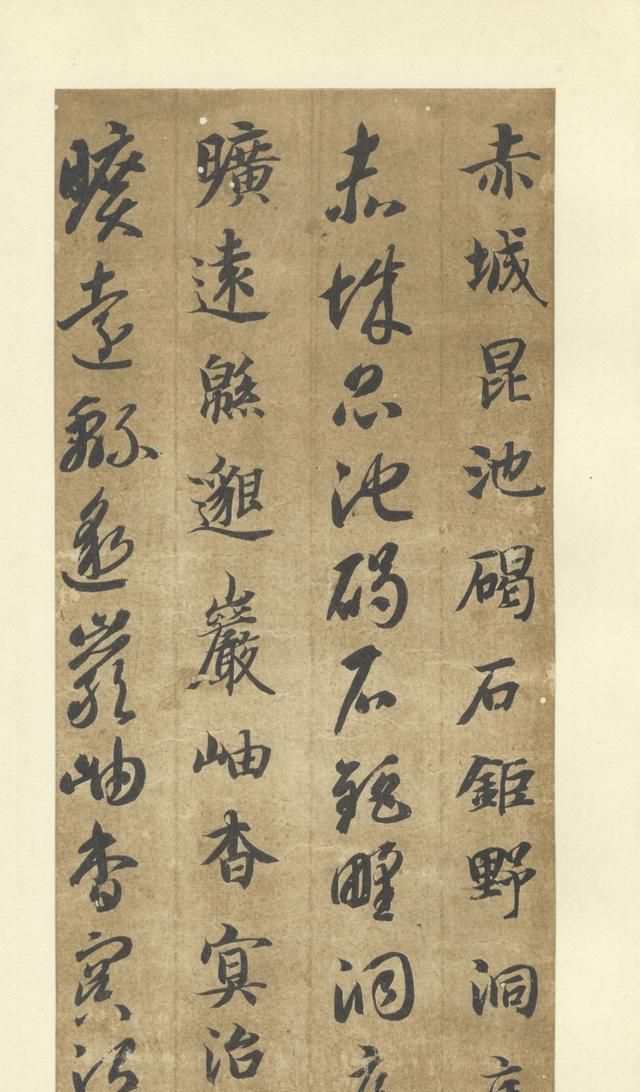 赤城昆池碣石鉅野洞
赤城昆池碣石鉅野洞
曠遠緜邈巖岫杳冥治
曠遠緜邈巖岫杳冥治